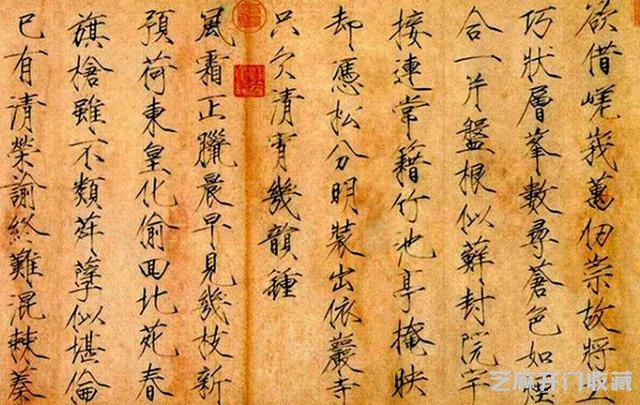 欲借嵯峩萬仞崇故將工
巧狀層峯數尋蒼色如煙
合一片盤根似蘚封院宇
接連常籍竹池亭掩映
却憑松分明裝出依巖寺
只欠清宵幾韻鍾
風霜正臘晨早見幾枝新
預荷東皇化偷回北苑春
旗槍雖不類荈孽似堪倫
已有清榮諭終難混棘蓁
芝麻开门收藏